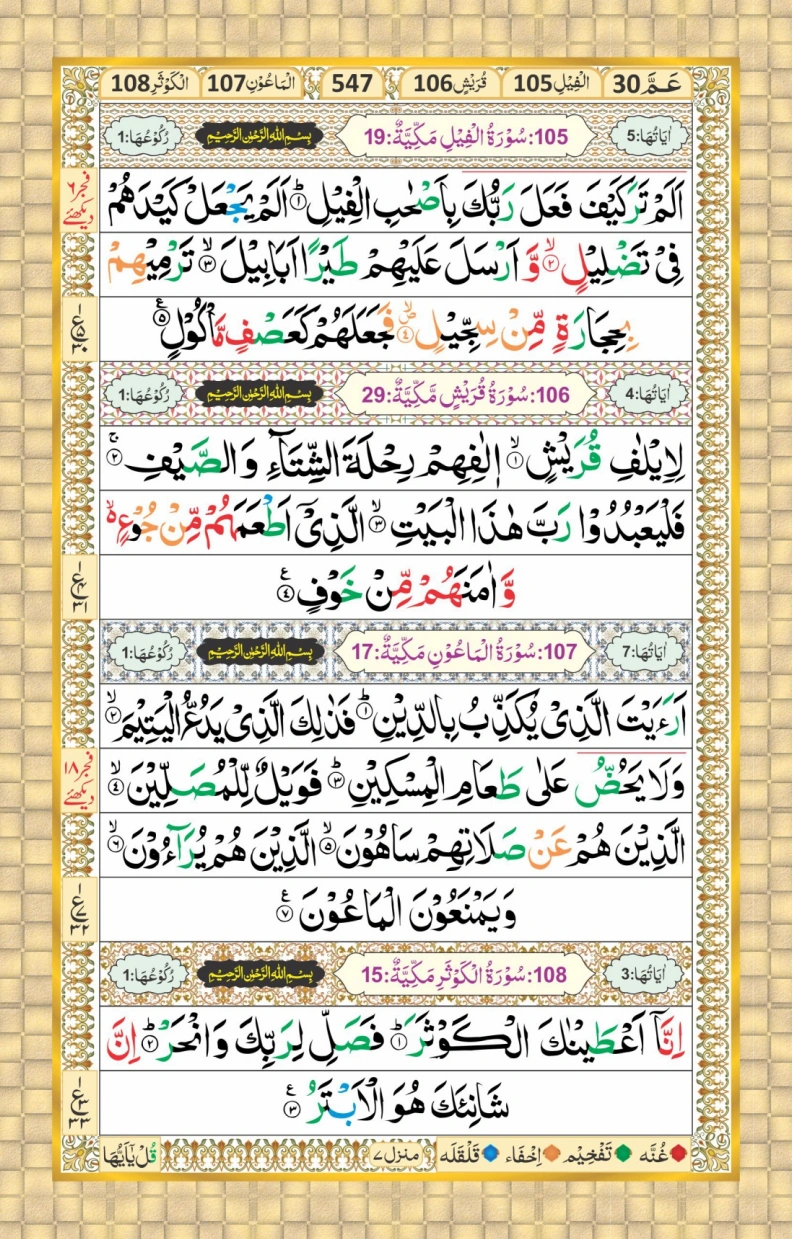 عَمَّ 30 الْفِيْلِ 105 قُرَيْشٍ 106 547 الْمَاعُوْنِ 107 الْكَوْثَرِ 108
اٰيَاتُهَا: 5 105: سُوْرَةُ الْفِيْلِ مَكِّيَّةٌ: 19 بِسْمِ اللّٰهِ الرَّحْمٰنِ الرَّحِيْمِ رُكُوْعُهَا: 1
اَلَمْ تَرَ كَيْفَ فَعَلَ رَبُّكَ بِاَصْحٰبِ الْفِيْلِ ؕ‏﴿۱﴾ اَلَمْ يَجْعَلْ كَيْدَهُمْ
فجر ٦ دیکھئے
فِىْ تَضْلِيْلٍۙ‏﴿۲﴾ وَّ اَرْسَلَ عَلَيْهِمْ طَيْرًا اَبَابِيْلَۙ‏﴿۳﴾ تَرْمِيْهِمْ
بِحِجَارَةٍ مِّنْ سِجِّيْلٍ۪ۙ‏﴿۴﴾ فَجَعَلَهُمْ كَعَصْفٍ مَّاْكُوْلٍ‏﴿۵﴾
ع ۱ ۵ ۳۰
اٰيَاتُهَا: 4 106: سُوْرَةُ قُرَيْشٍ مَّكِّيَّةٌ: 29 بِسْمِ اللّٰهِ الرَّحْمٰنِ الرَّحِيْمِ رُكُوْعُهَا: 1
لِاِيْلٰفِ قُرَيْشٍۙ‏﴿۱﴾ اٖلٰفِهِمْ رِحْلَةَ الشِّتَآءِ وَالصَّيْفِۚ‏﴿۲﴾
فَلْيَعْبُدُوْا رَبَّ هٰذَا الْبَيْتِۙ‏﴿۳﴾ الَّذِىْۤ اَطْعَمَهُمْ مِّنْ جُوْعٍ ۙ
وَّاٰمَنَهُمْ مِّنْ خَوْفٍ‏﴿۴﴾
ع ۱ ۴ ۳۱
اٰيَاتُهَا: 7 107: سُوْرَةُ الْمَاعُوْنِ مَكِّيَّةٌ: 17 بِسْمِ اللّٰهِ الرَّحْمٰنِ الرَّحِيْمِ رُكُوْعُهَا: 1
اَرَءَيْتَ الَّذِىْ يُكَذِّبُ بِالدِّيْنِؕ‏﴿۱﴾ فَذٰلِكَ الَّذِىْ يَدُعُّ الْيَتِيْمَۙ‏﴿۲﴾
وَ لَا يَحُضُّ عَلٰى طَعَامِ الْمِسْكِيْنِؕ‏﴿۳﴾ فَوَيْلٌ لِّلْمُصَلِّيْنَۙ‏﴿۴﴾
فجر ۱۸ دیکھئے
الَّذِيْنَ هُمْ عَنْ صَلَاتِهِمْ سَاهُوْنَۙ‏﴿۵﴾ الَّذِيْنَ هُمْ يُرَآءُوْنَۙ‏﴿۶﴾
وَيَمْنَعُوْنَ الْمَاعُوْنَ‏﴿۷﴾
ع ۱ ۷ ۳۲
اٰيَاتُهَا: 3 108: سُوْرَةُ الْكَوْثَرِ مَكِّيَّةٌ: 15 بِسْمِ اللّٰهِ الرَّحْمٰنِ الرَّحِيْمِ رُكُوْعُهَا: 1
اِنَّاۤ اَعْطَيْنٰكَ الْكَوْثَرَؕ‏﴿۱﴾ فَصَلِّ لِرَبِّكَ وَانْحَرْؕ‏﴿۲﴾ اِنَّ
شَانِئَكَ هُوَ الْاَبْتَرُ‏﴿۳﴾
ع ۱ ۳ ۳۳
غُنَّه تَفْخِيْم اِخْفَاء قَلْقَلَه منزل ۷ قُلْ يٰۤاَيُّهَا